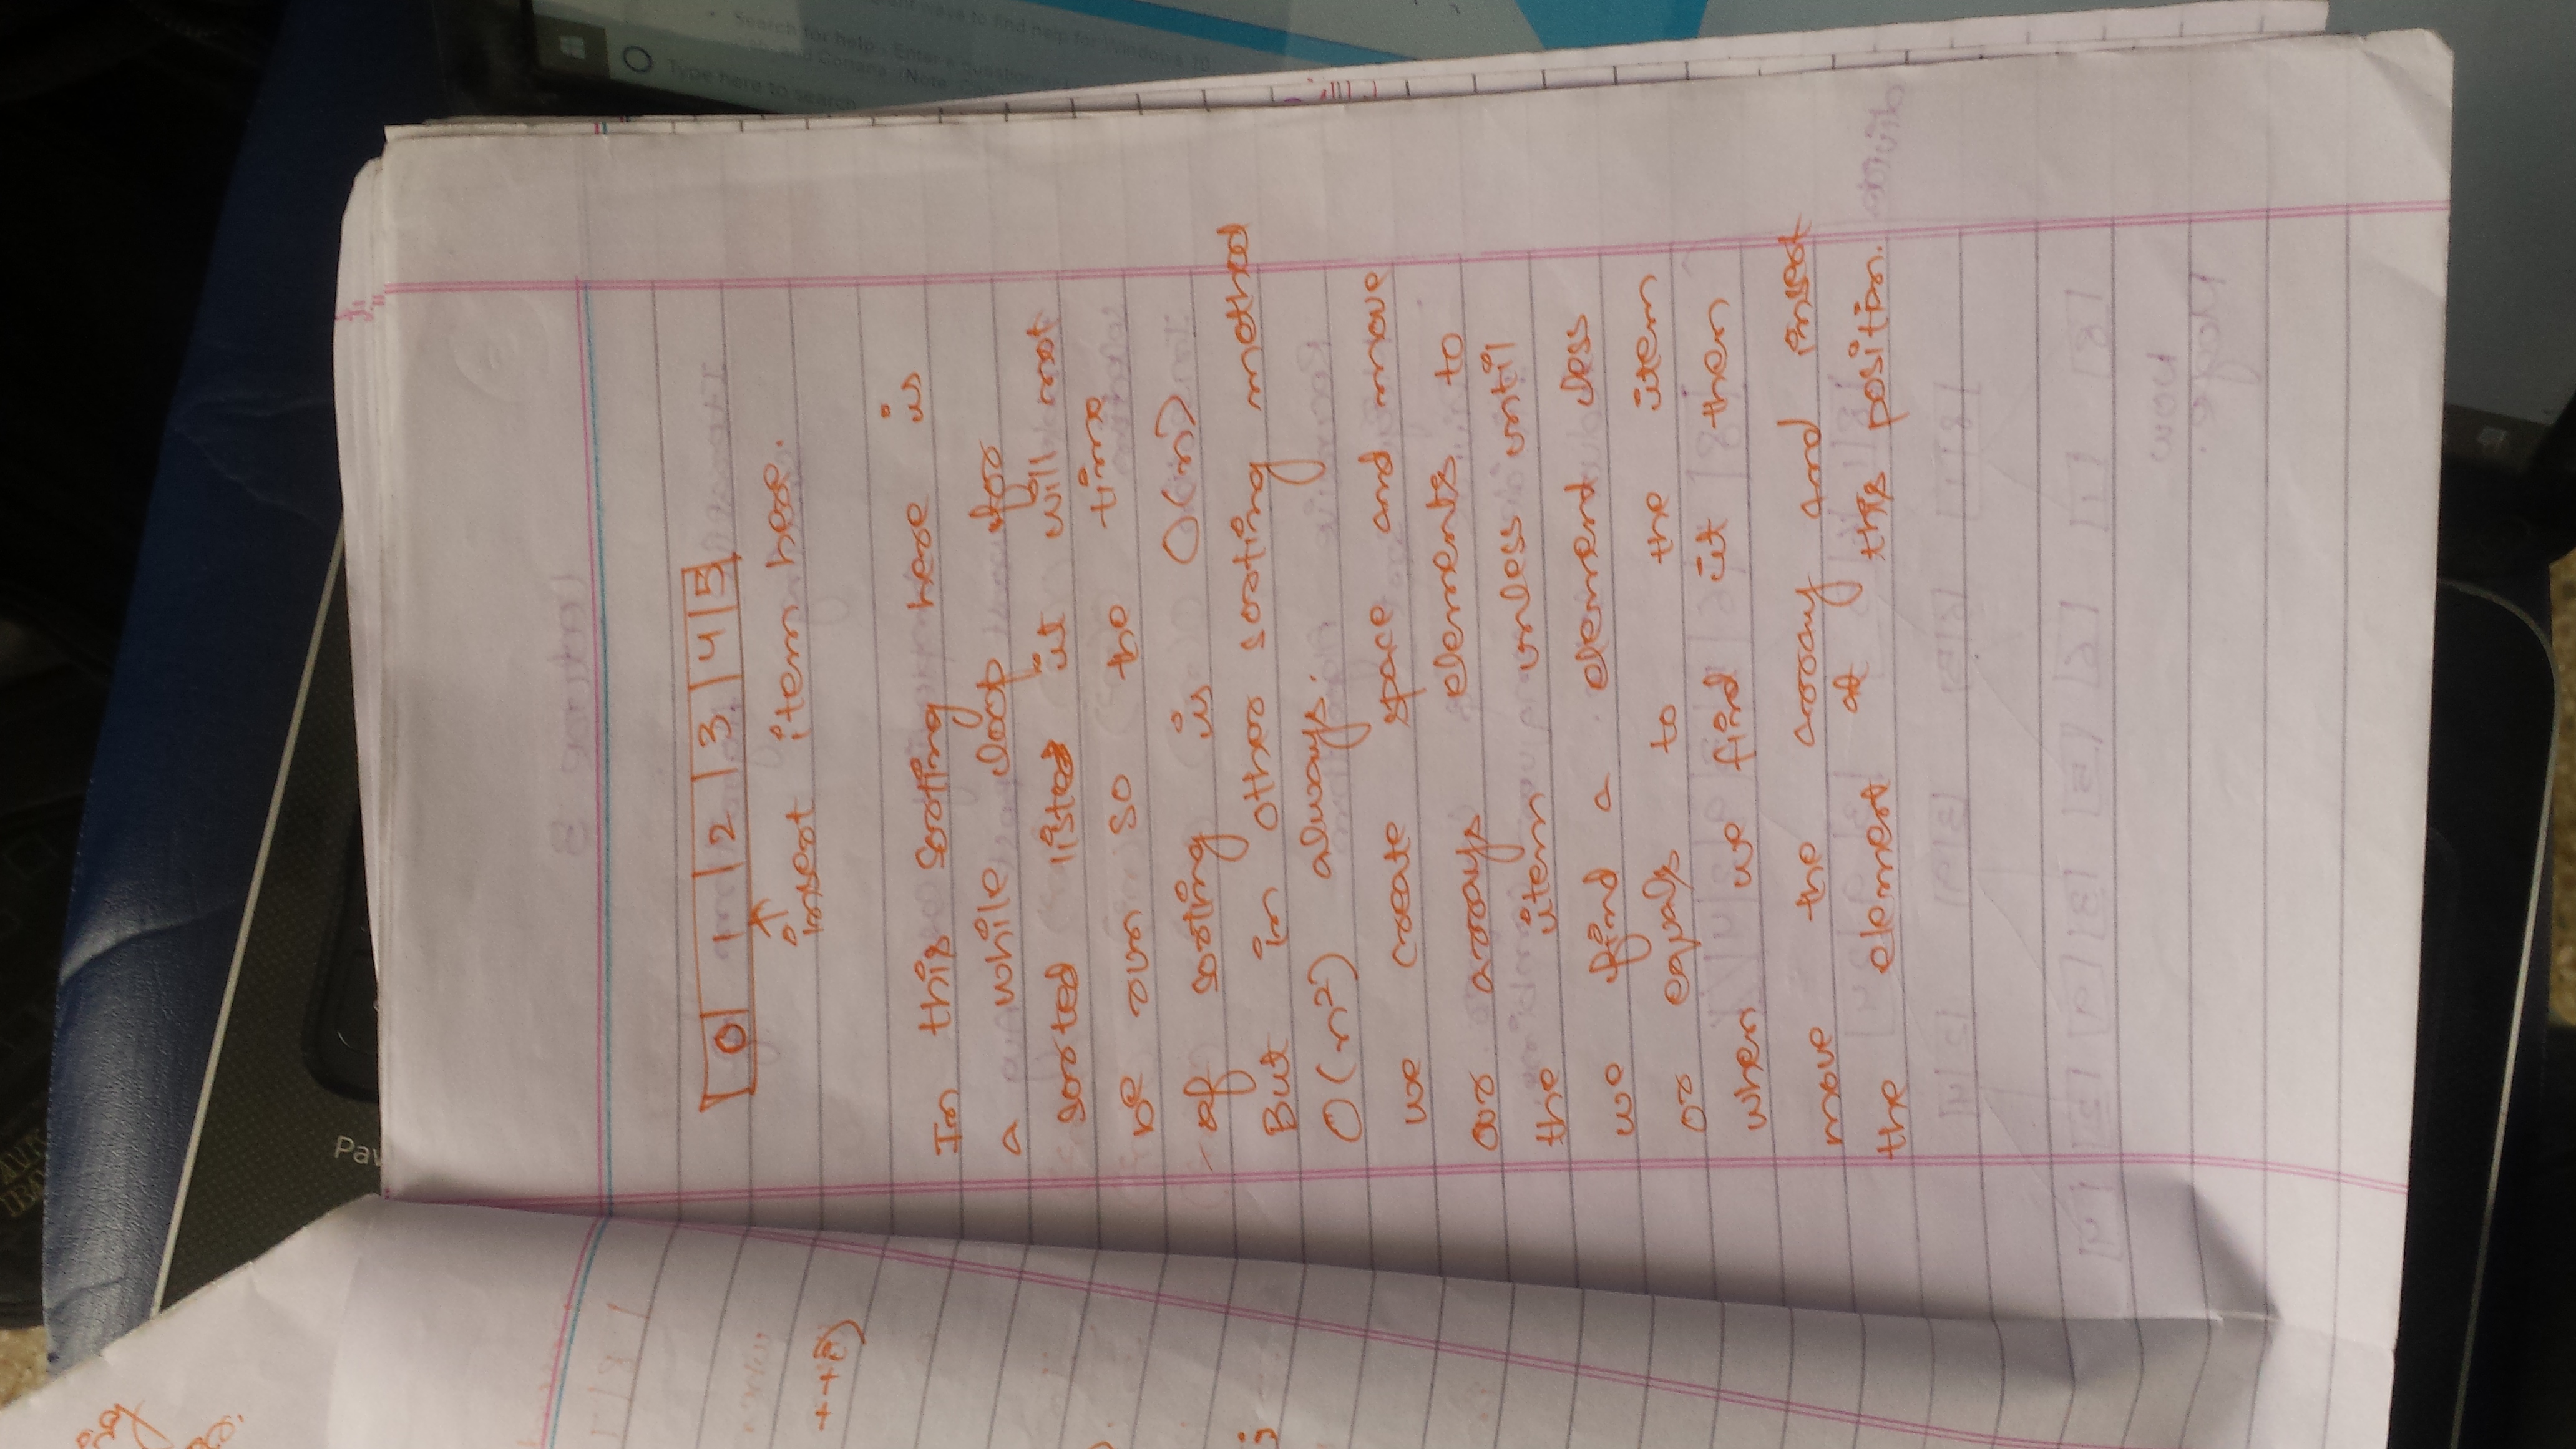 0 1 2 3 4 5
insert item here.
In this sorting here is
a while loop for
sorted list it will not
be run so the time
of sorting is O(n)
But in other sorting method
O(n²) always.
we create space and move
our arrays elements to
the item unless until
we find a element less
or equals to the item
when we find it then
move the array and insert
the element at this position.
++i)
;
Pav
Type here to search